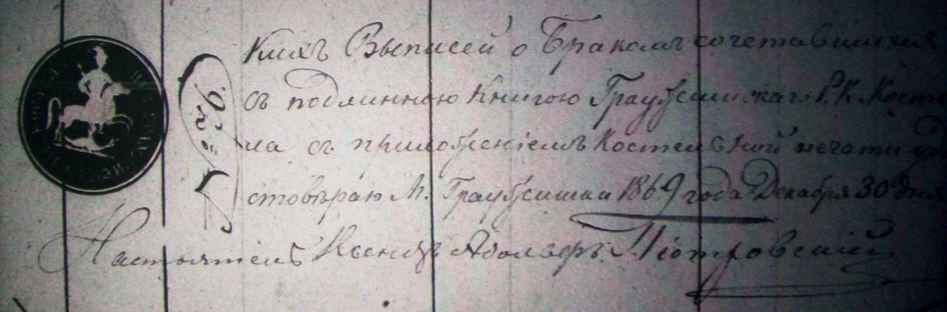 кихъ Выписей о Бракомъ сочетавшихся
съ подлинною книгою Граужишкаго Р. К. Косте
ла съ приложеніемъ костельной печати удо
стовѣряю М. Граужишки 1869 года Декабря 30 дня
Настоятель Ксендзъ Піотровскій